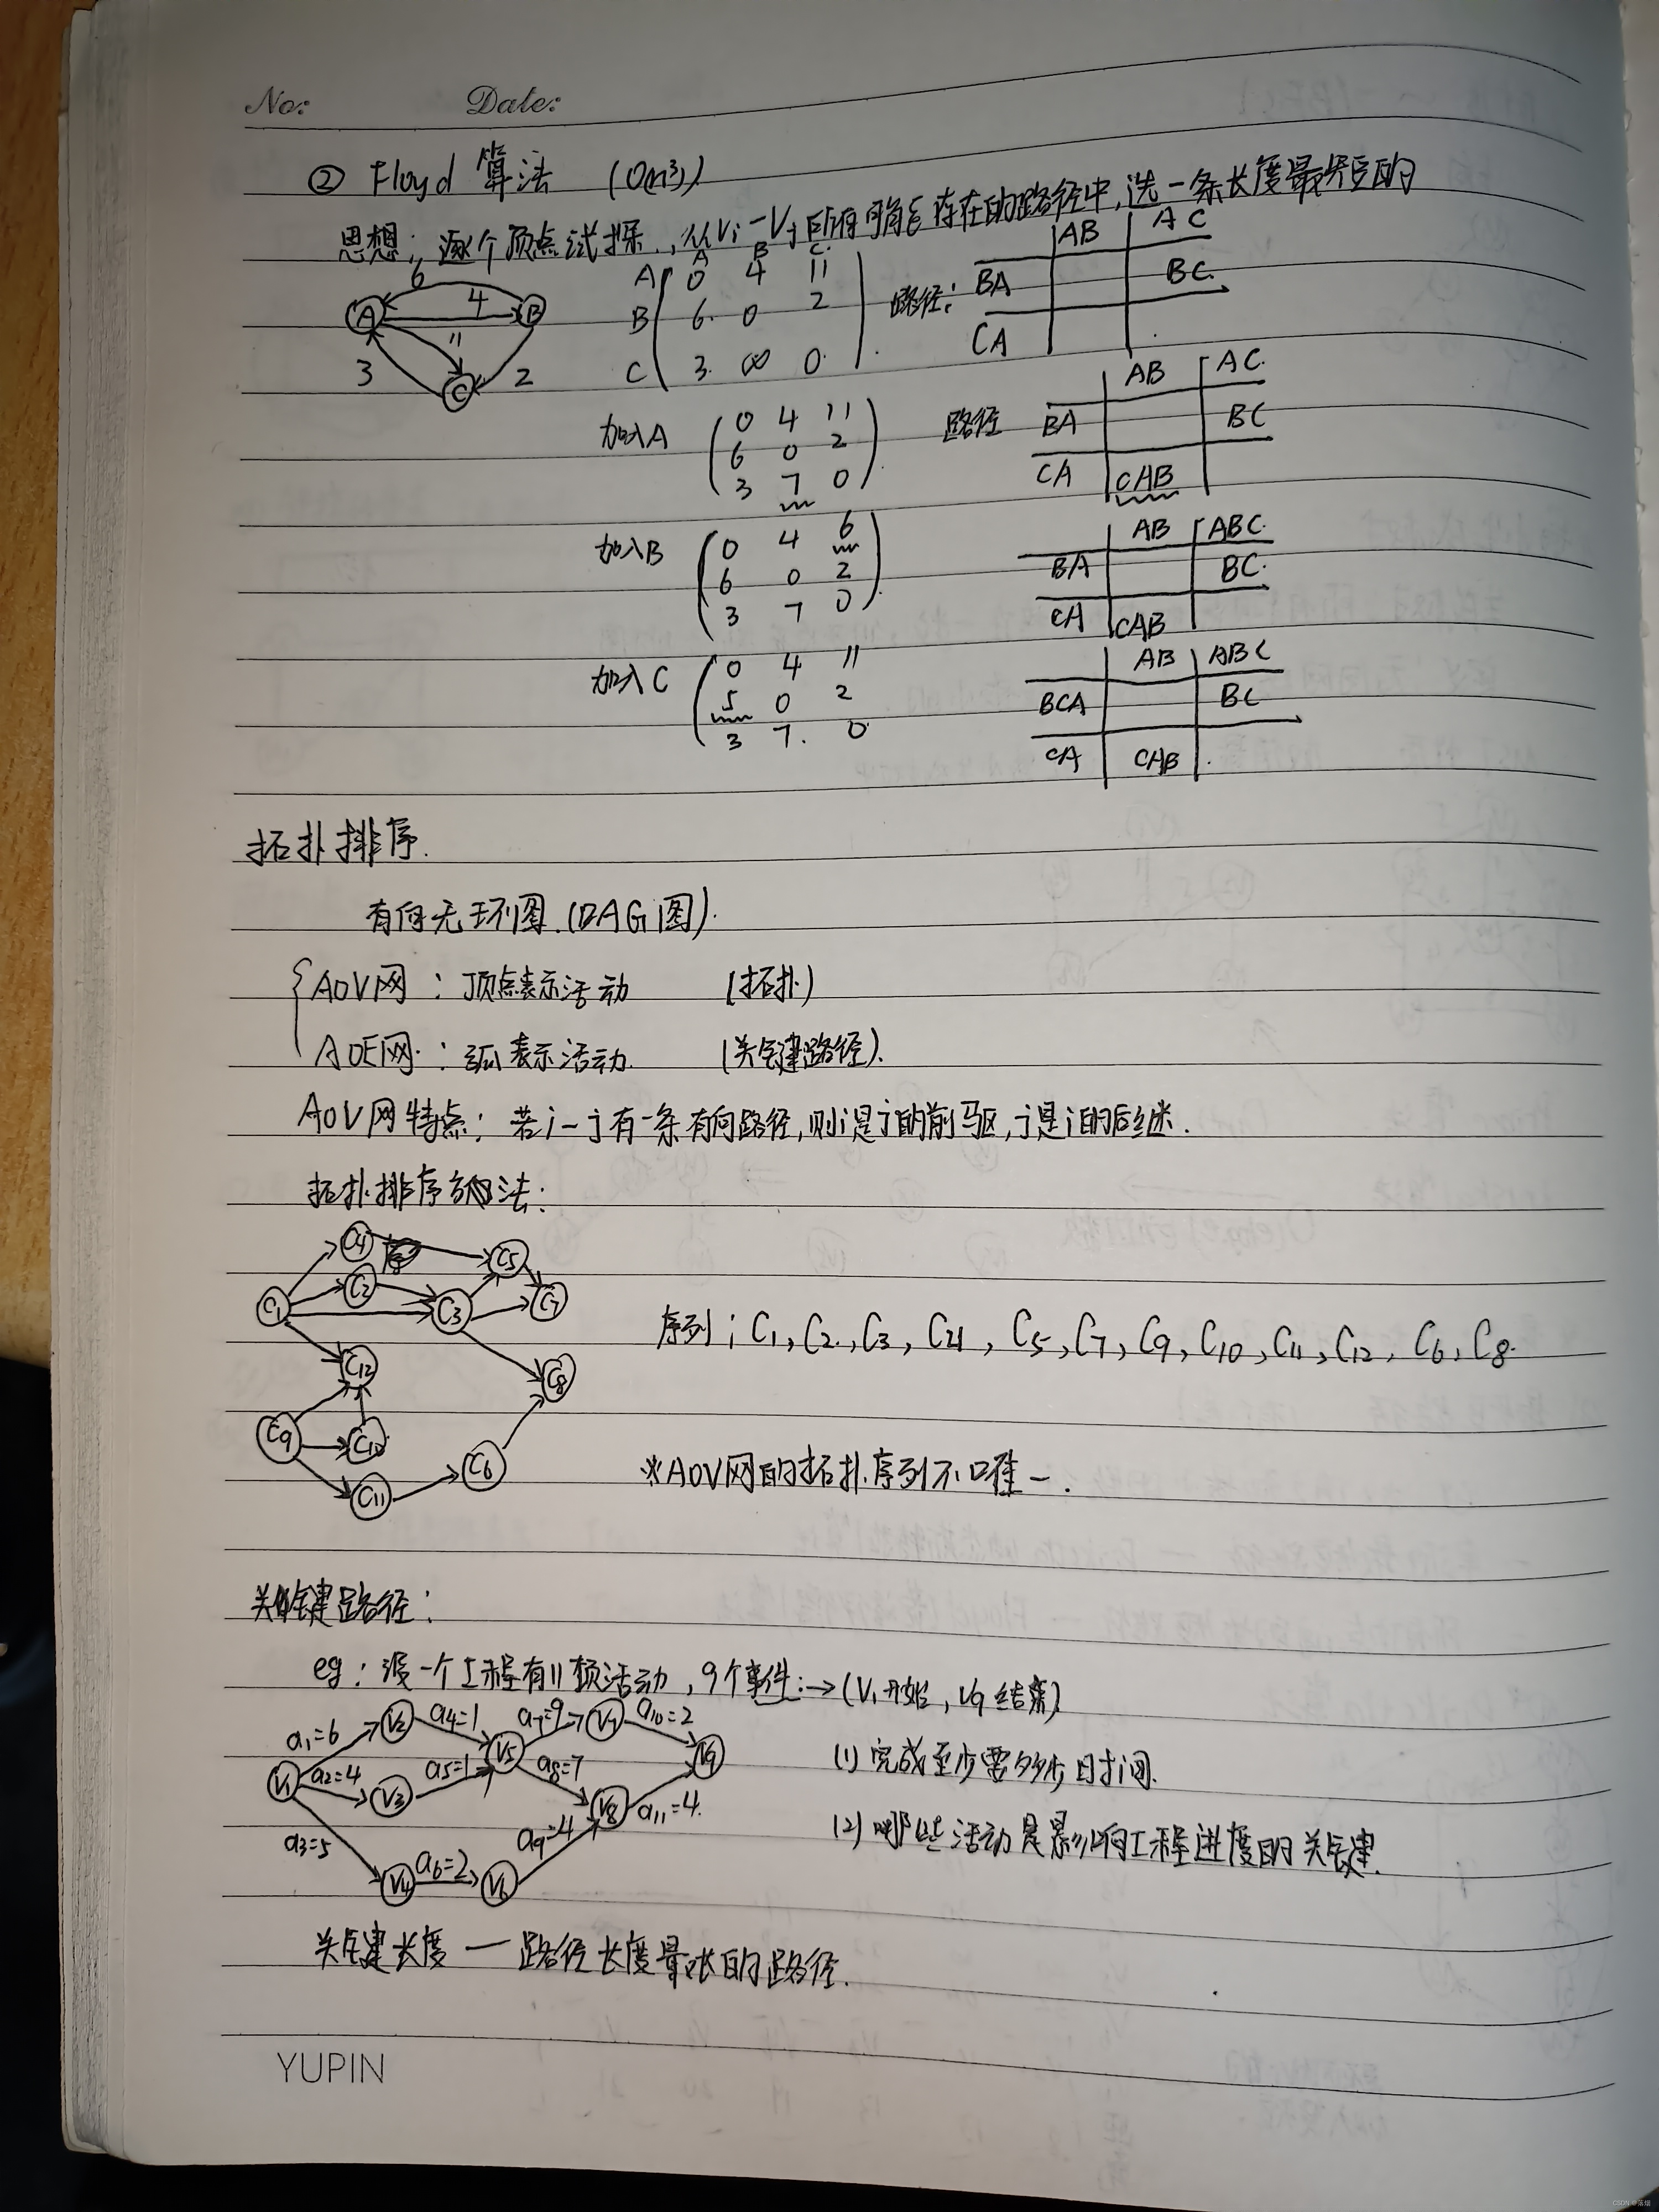 No: Date:
② Floyd 算法 (O(n³))
思想: 逐个顶点试探, 从Vi-Vj所有可能存在的路径中,选一条长度最短的
6
4
A B
11
3 2
C
A B C
A 0 4 11
B 6 0 2
C 3 ∞ 0
路径:
AB AC
BA BC
CA
加入A
0 4 11
6 0 2
3 7 0
路径
AB AC
BA BC
CA CAB
加入B
0 4 6
6 0 2
3 7 0
AB ABC
BA BC
CA CAB
加入C
0 4 11
5 0 2
3 7 0
AB ABC
BCA BC
CA CAB
拓扑排序.
有向无环图(DAG图).
AOV网: 顶点表示活动 (拓扑)
AOE网: 弧表示活动. (关键路径).
AOV网特点: 若i-j有一条有向路径,则i是j的前驱,j是i的后继.
拓扑排序方法:
C4 C5
C2
C1 C3 C7
C12
C8
C9 C10
C6
C11
序列: C1, C2, C3, C4, C5, C7, C9, C10, C11, C12, C6, C8.
※AOV网的拓扑序列不唯一.
关键路径:
eg: 设一个工程有11项活动, 9个事件:→(V1开始, V9结束)
a1=6 V2 a4=1 a7=9 V7 a10=2
V1 a2=4 V3 a5=1 V5 a8=7 V9
V8 a11=4.
a3=5 a9=4
V4 a6=2 V6
(1) 完成至少需多少时间.
(2) 哪些活动是影响工程进度的关键.
关键长度 — 路径长度最长的路径.
YUPIN
CSDN @落烟